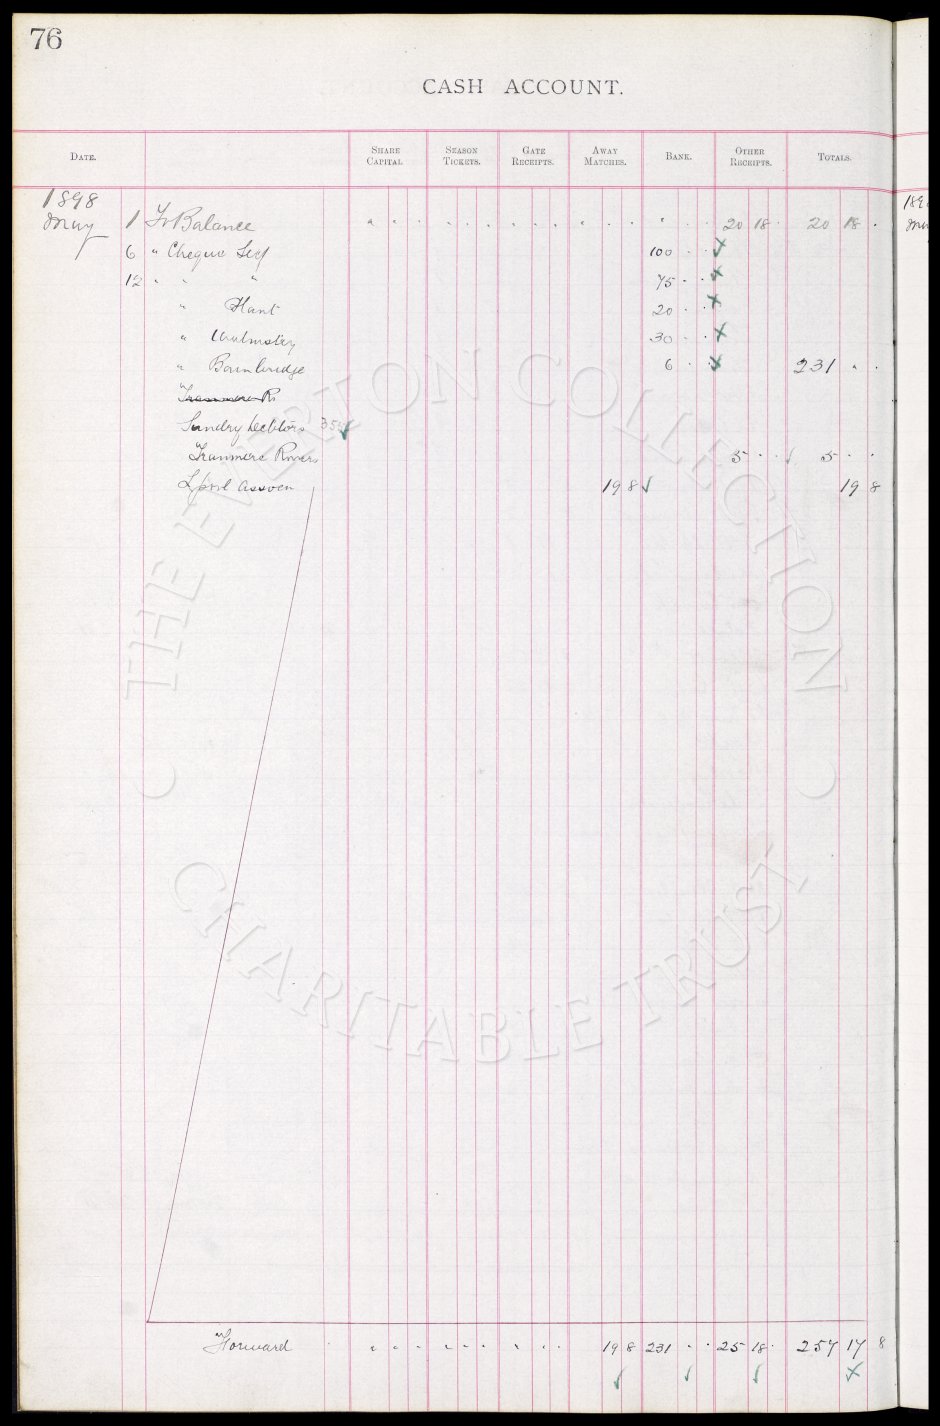 76
CASH ACCOUNT.
DATE. SHARE CAPITAL SEASON TICKETS. GATE RECEIPTS. AWAY MATCHES. BANK. OTHER RECEIPTS. TOTALS.
1898
May 1 To Balance " " · · · · · · · " · · " · · 20 18 · 20 18 ·
6 " Cheque Self 100 · ·
12 " " " 75 · ·
" Hunt 20 · ·
" 30 · ·
" Bainbridge 6 · · 231 " ·
Tranmere Rs
Sundry Debtors 354
Tranmere Rovers 5 · · 5 · ·
L'pool Assocn 19 8 19 8
Forward " · · · · · · " · · 19 8 231 · · 25 18 · 257 17 8
1898
May
THE EVERTON COLLECTION
CHARITABLE TRUST